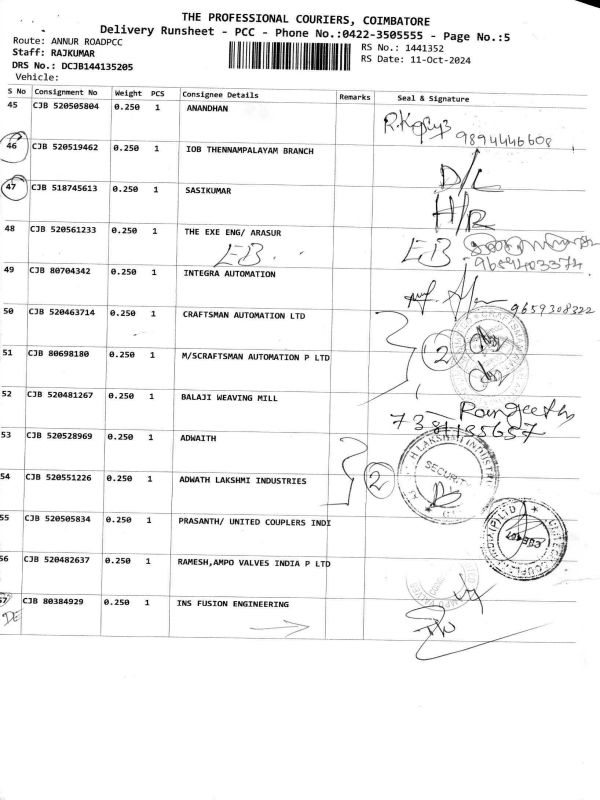 THE PROFESSIONAL COURIERS, COIMBATORE
Delivery Runsheet - PCC - Phone No.:0422-3505555 - Page No.:5
Route: ANNUR ROADPCC
RS No.: 1441352
Staff: RAJKUMAR
RS Date: 11-Oct-2024
DRS No.: DCJB144135205
Vehicle:
S No Consignment No Weight PCS Consignee Details Remarks Seal & Signature
45 CJB 520505804 0.250 1 ANANDHAN
9894446608
46 CJB 520519462 0.250 1 IOB THENNAMPALAYAM BRANCH
D/L
47 CJB 518745613 0.250 1 SASIKUMAR
H/R
48 CJB 561233 0.250 1 THE EXE ENG/ ARASUR
EB EB
49 CJB 80704342 0.250 1 INTEGRA AUTOMATION
9659308322
50 CJB 520463714 0.250 1 CRAFTSMAN AUTOMATION LTD
2
51 CJB 80698180 0.250 1 M/SCRAFTSMAN AUTOMATION P LTD
52 CJB 520481267 0.250 1 BALAJI WEAVING MILL
Rangeeth
7381135657
53 CJB 520528969 0.250 1 ADWAITH
LAKSHMI INDUSTRI
SECURIT
54 CJB 520551226 0.250 1 ADWATH LAKSHMI INDUSTRIES
2
55 CJB 520505834 0.250 1 PRASANTH/ UNITED COUPLERS INDI
56 CJB 520482637 0.250 1 RAMESH,AMPO VALVES INDIA P LTD
57 CJB 80384929 0.250 1 INS FUSION ENGINEERING
DE